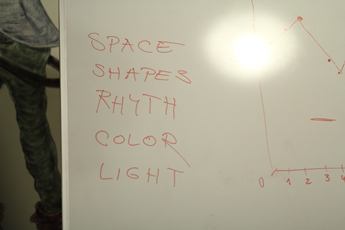 SPACE
SHAPES
RHYTH
COLOR
LIGHT
0 1 2 3 4